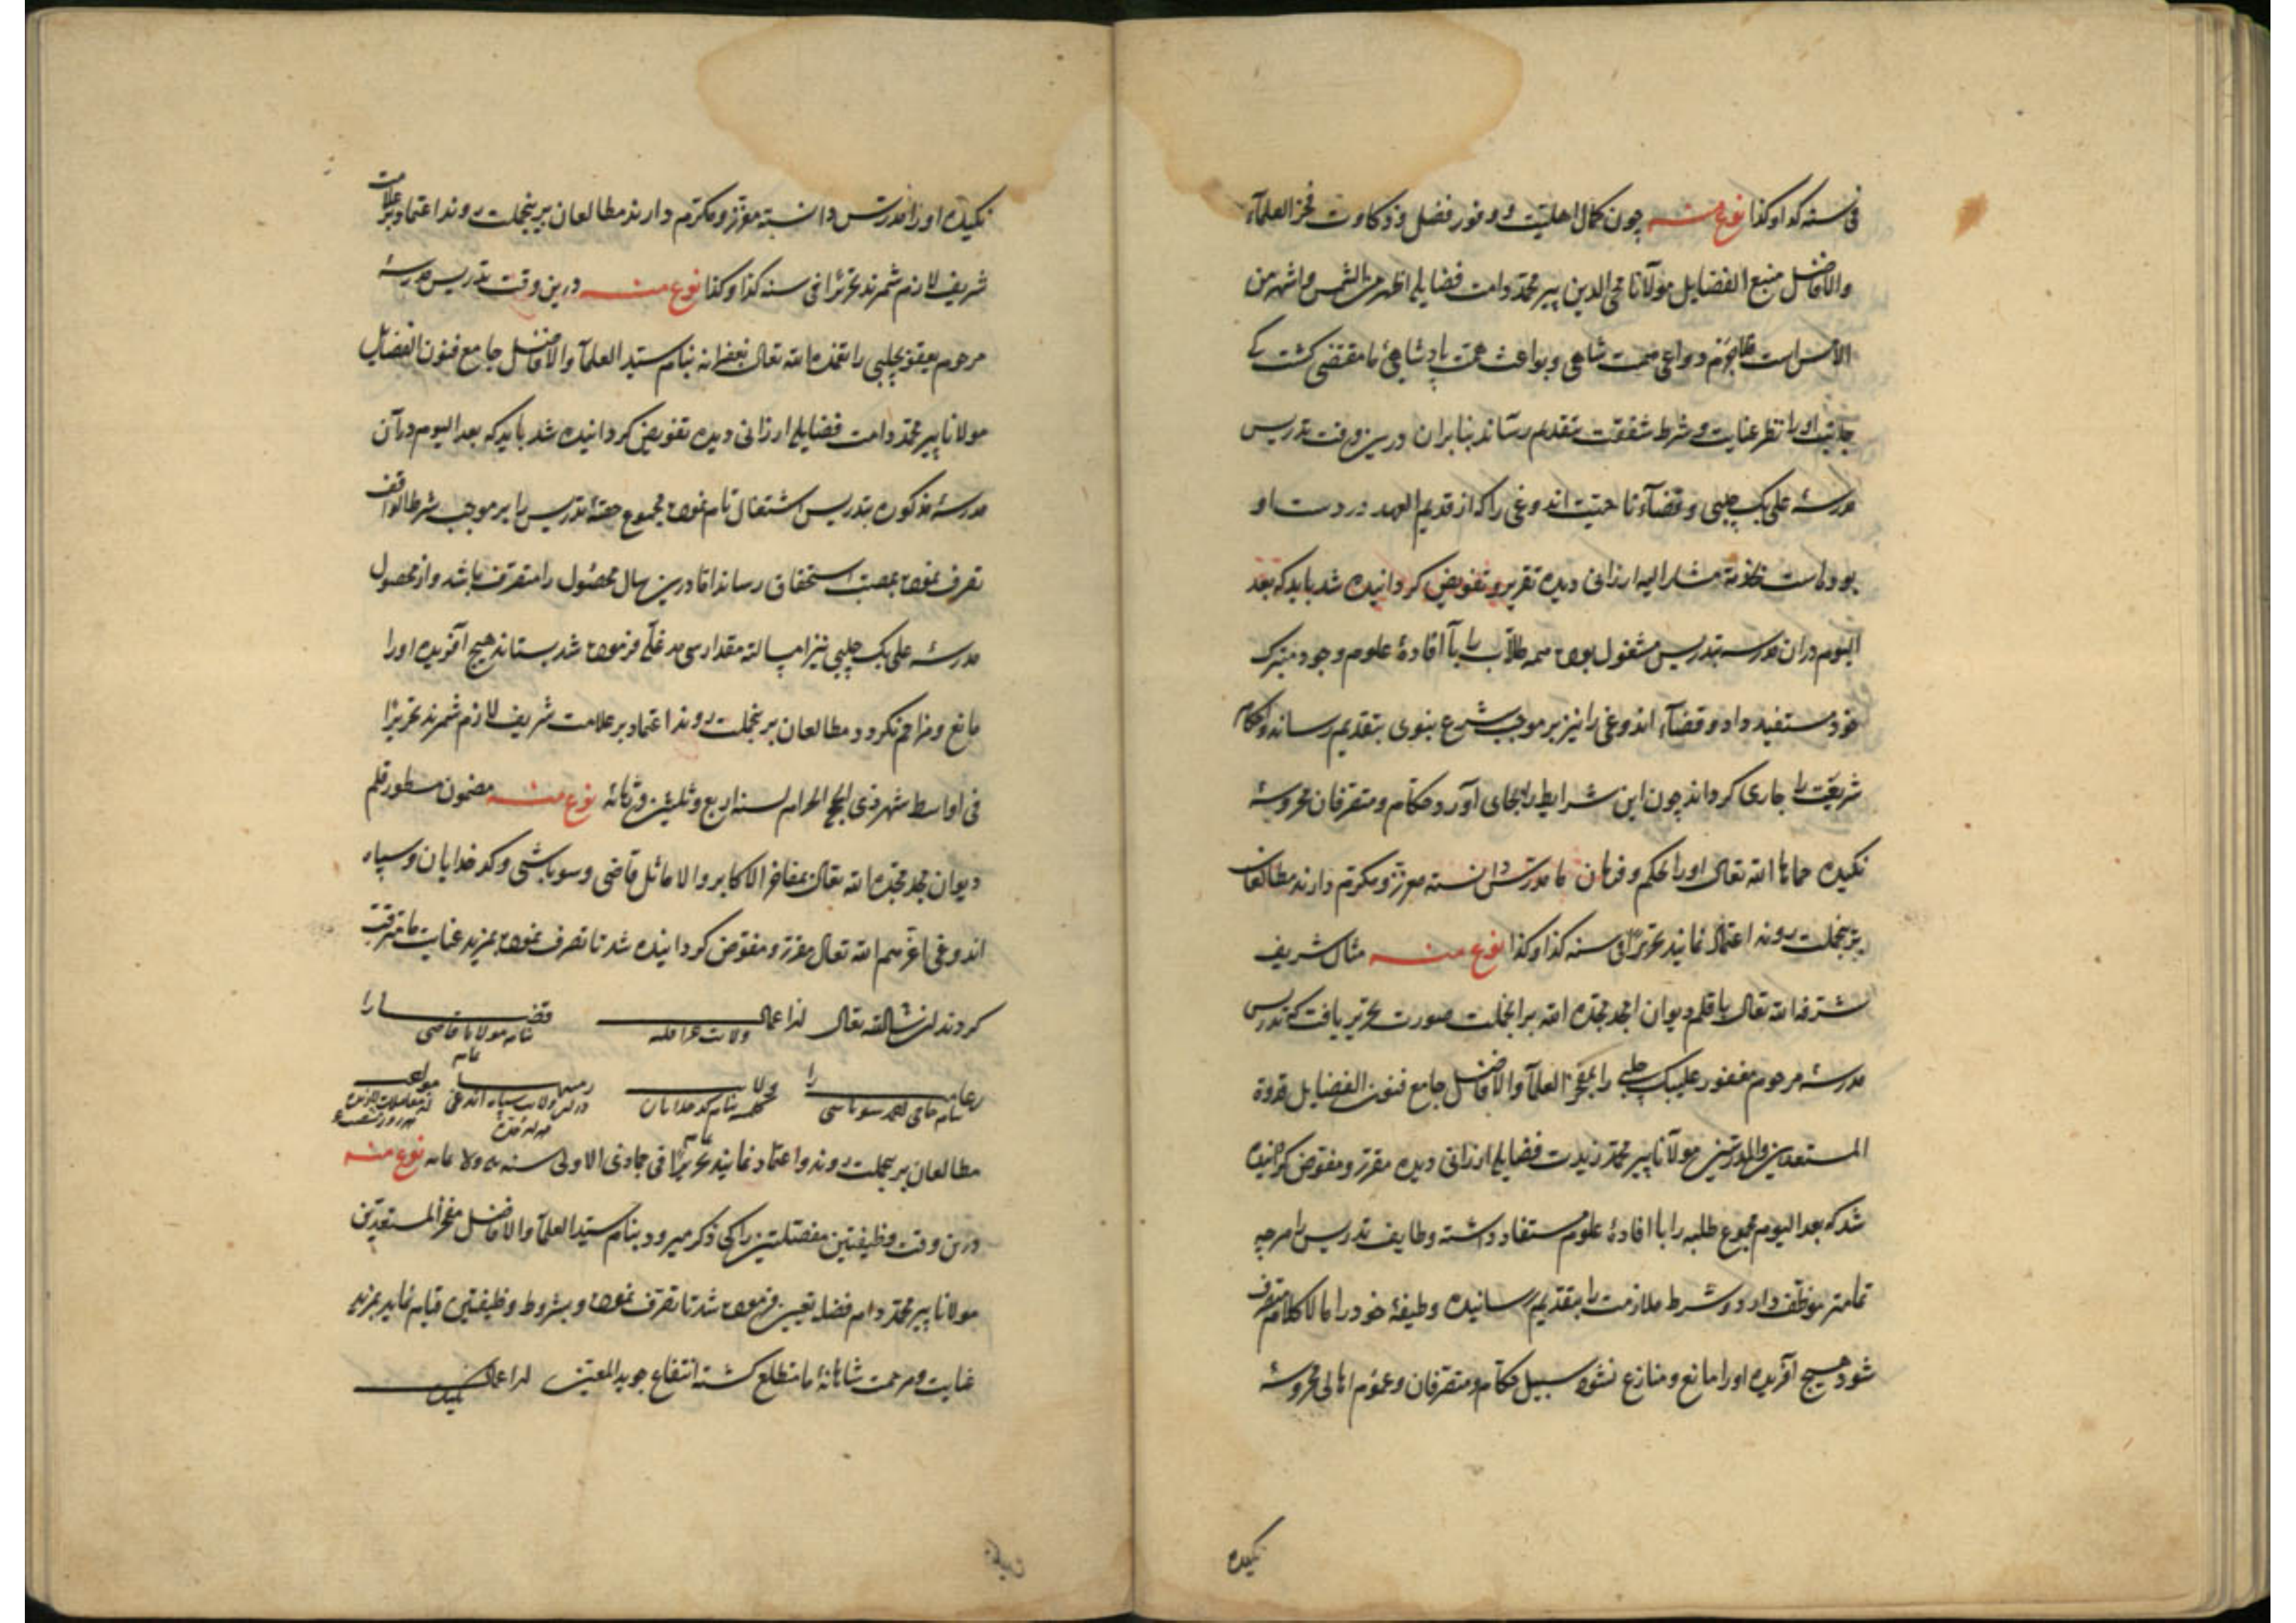 فی سنه کذا و کذا نوع منه چون کمال اهلیت و وفور فضل و ذکاوت فخر العلمآء
والافاضل منبع الفضایل مولانا محی الدین پیر محمد دامت فضایله اظهر من الشمس و اشهر من
الامس است دواعی همت شاهی و بواعث همت پادشاهی ما مقتضی کشت که
جانب او را نظر عنایت و شرط شفقت بتقدیم رساند بنابران درین وقت تدریس
مدرسهٔ علی بک چلبی و قضآء ناحیت اندوغی را که از قدیم العهد در دست او
بوده است مشار الیه ارزانی دیده تقریر و تفویض کردانیده شد باید که بعد
الیوم دران مدرسه بتدریس مشغول بوده همه طلاب را با افادهٔ علوم وجود متبرک
خود مستفید دارد و قضآء اندوغی را نیز بر موجب شرع نبوی بتقدیم رساند و احکام
شریعت را جاری کرداند چون این شرایط را بجای آورد حکام و متصرفان محروسهٔ
نکیده حماها الله تعالی او را بحکم و فرمان ما مدرس دانسته معزز و مکرم دارند مطالعان
برینجملت روند اعتماد نمایند تحریرا فی سنه کذا و کذا نوع منه مثال شریف
شرفه الله تعالی با قلم دیوان امجد مجده الله برانجملت صورت تحریر یافت که تدریس
مدرسهٔ مرحوم مغفور علیبک چلبی را بمفخر العلمآ والافاضل جامع فنون الفضایل قدوة
المستعدین والمدرسین مولانا پیر محمد زیدت فضایله ارزانی دیده مقرر و مفوض کردانیده
شد که بعد الیوم مجموع طلبه را با افادهٔ علوم مستفاد داشته وظایف تدریس را هرچه
تمامتر موظف دارد و شرط ملازمت را بتقدیم رسانیده وظیفهٔ خود را متصرف
شود هیچ آفریده او را مانع و منازع نشود سبیل حکام و متصرفان و عموم اهالی محروسهٔ
نکیده
نکیده او را مدرس دانسته معزز و مکرم دارند مطالعان برینجملت روند اعتماد بر علامت
شریف لازم شمرند تحریرا فی سنه کذا و کذا نوع منه درین وقت تدریس مدرسهٔ
مرحوم یعقوب چلبی را تغمده الله تعالی بغفرانه بنام سید العلمآ والافاضل جامع فنون الفضایل
مولانا پیر محمد دامت فضایله ارزانی دیده تفویض کردانیده شد باید که بعد الیوم در آن
مدرسهٔ مذکوره بتدریس اشتغال تام نموده مجموع حصهٔ تدریس را بر موجب شرط الواقف
تصرف نموده بمصب استحقاق رساند اما درین سال محصول را متصرف باشد و از محصول
مدرسهٔ علی بک چلبی نیز مقدار سی مد غله فرموده شد بستاند هیچ آفریده او را
مانع و مزاحم نکردد مطالعان برینجملت روند اعتماد بر علامت شریف لازم شمرند تحریرا
فی اواسط شهر ذی الحج الحرام لسنه اربع و ثلثین و ثمانمائه نوع منه مضمون مسطور قلم
دیوان مجد مجده الله تعالی بمفاخر الاکابر والاماثل قاضی و سوباشی و کدخدایان و سپاه
اندوغی اعزهم الله تعالی مقرر و مفوض کردانیده شد تا تصرف نموده بمزید عنایت ما مترقب
کردند ان شا الله تعالی لذ اعمال ولایت قضا را
بنام مولانا قاضی
را سوباشی بنام کدخدایان سپاه اندوغی
مطالعان برینجملت روند و اعتماد نمایند تحریرا فی جمادی الاولی سنه نوع منه
درین وقت وظیفتین مفصلتین را کی ذکر میرود بنام سید العلمآ والافاضل مفخر المستعدین
مولانا پیر محمد دام فضله تعیین فرموده شد تا تصرف نموده و بشروط وظیفتین قیام نماید بمزید
عنایت و مرحمت شاهانهٔ ما متطلع کشته انتفاع جوید المعین لذ اعمال نکیده